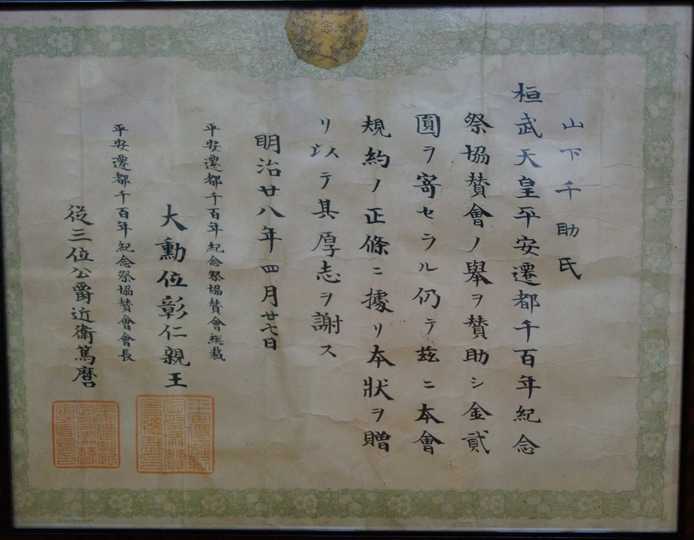 山下千助氏
桓武天皇平安遷都千百年紀念
祭協賛會ノ舉ヲ賛助シ金貳
圓ヲ寄セラル仍テ玆ニ本會
規約ノ正條ニ據リ本狀ヲ贈
リ以テ其厚志ヲ謝ス
明治廿八年四月廿七日
平安遷都千百年紀念祭協賛會総裁
大勳位彰仁親王
平安遷都千百年紀念祭協賛會會長
従三位公爵近衛篤麿